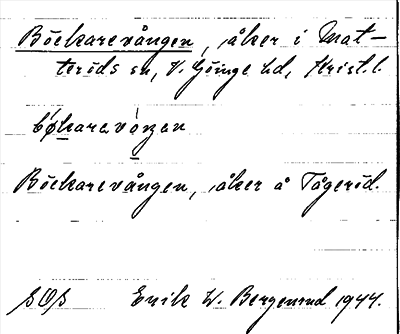 Böckarevången, åker i Mat-
teröds sn, V. Göinge hd, Krist. l.
bǿkaravåŋen
Böckarevången, åker å Tågeröd.
SOS Erik W. Bergenrud 1944.